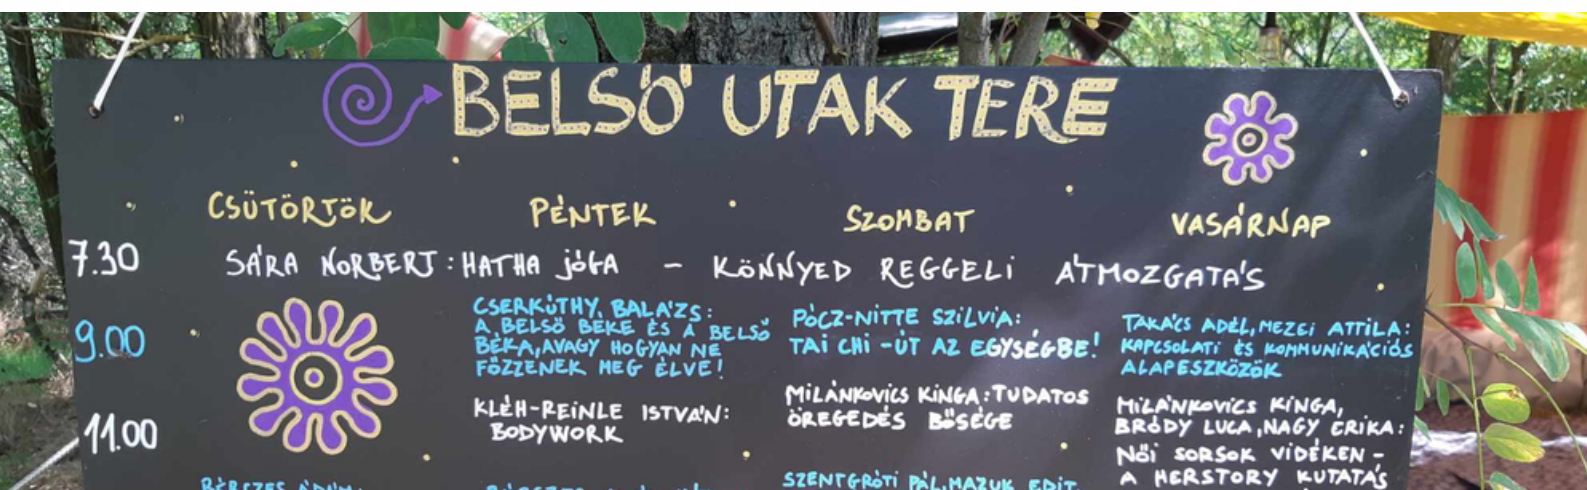 BELSŐ UTAK TERE
CSÜTÖRTÖK PÉNTEK SZOMBAT VASÁRNAP
7.30 SÁRA NORBERT: HATHA JÓGA - KÖNNYED REGGELI ÁTMOZGATÁS
9.00
CSERKÚTHY BALÁZS:
A BELSŐ BÉKE ÉS A BELSŐ
BÉKA, AVAGY HOGYAN NE
FŐZZENEK MEG ÉLVE!
PÓCZ-NITTE SZILVIA:
TAI CHI - ÚT AZ EGYSÉGBE!
TAKÁCS ADÉL, MEZEI ATTILA:
KAPCSOLATI ÉS KOMMUNIKÁCIÓS
ALAPESZKÖZÖK
11.00
KLÉH-REINLE ISTVÁN:
BODYWORK
MILÁNKOVICS KINGA: TUDATOS
ÖREGEDÉS BŐSÉGE
MILÁNKOVICS KINGA,
BRÓDY LUCA, NAGY ERIKA:
NŐI SORSOK VIDÉKEN -
A HERSTORY KUTATÁS
SZENTGRÓTI PÁL, MAZUK EDIT